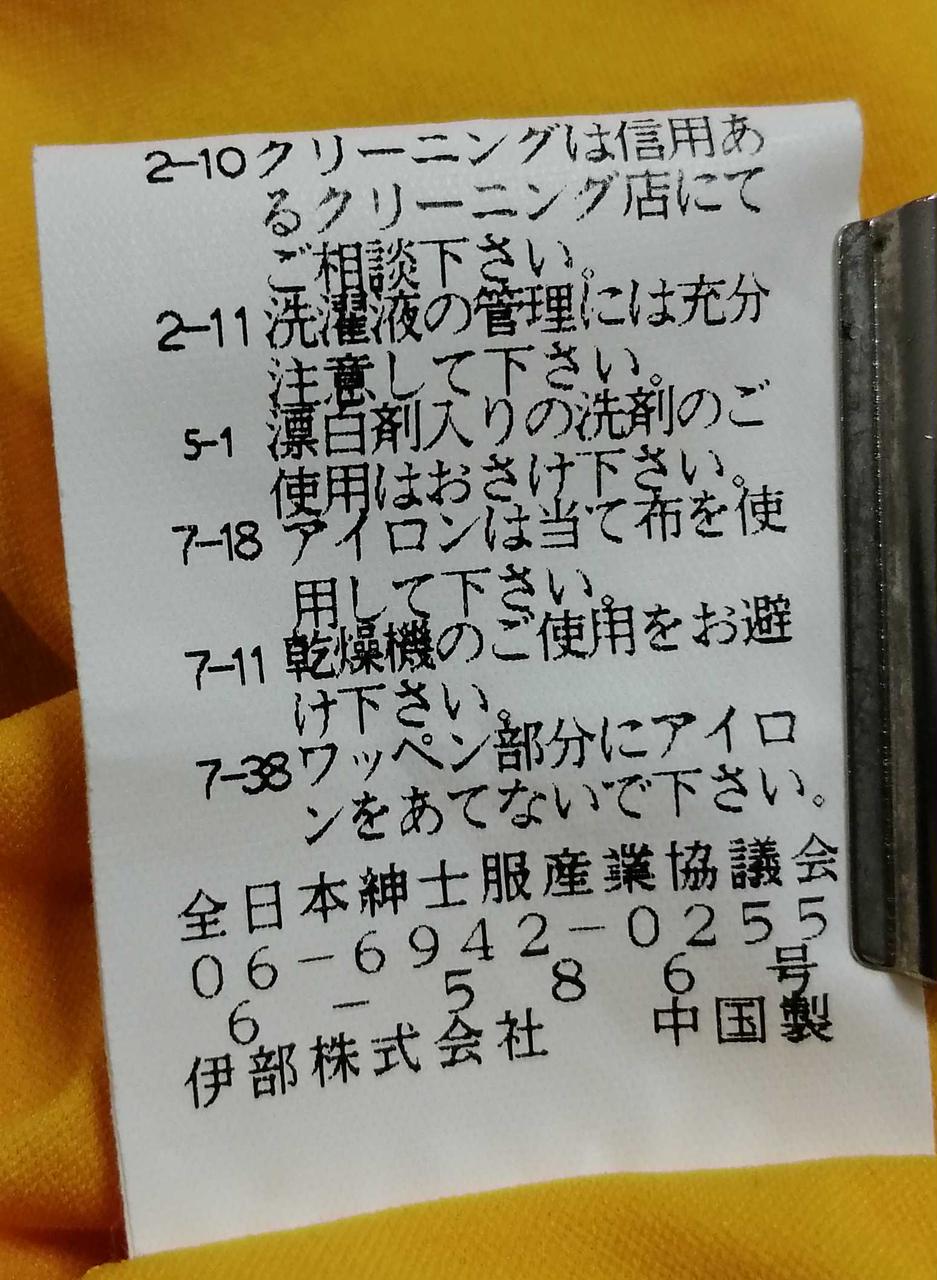 2-10クリーニングは信用あ
るクリーニング店にて
ご相談下さい。
2-11洗濯液の管理には充分
注意して下さい。
5-1 漂白剤入りの洗剤のご
使用はおさけ下さい。
7-18 アイロンは当て布を使
用して下さい。
7-11 乾燥機のご使用をお避
け下さい。
7-38ワッペン部分にアイロ
ンをあてないで下さい。
全日本紳士服産業協議会
06-6942-0255
6-586号
伊部株式会社 中国製